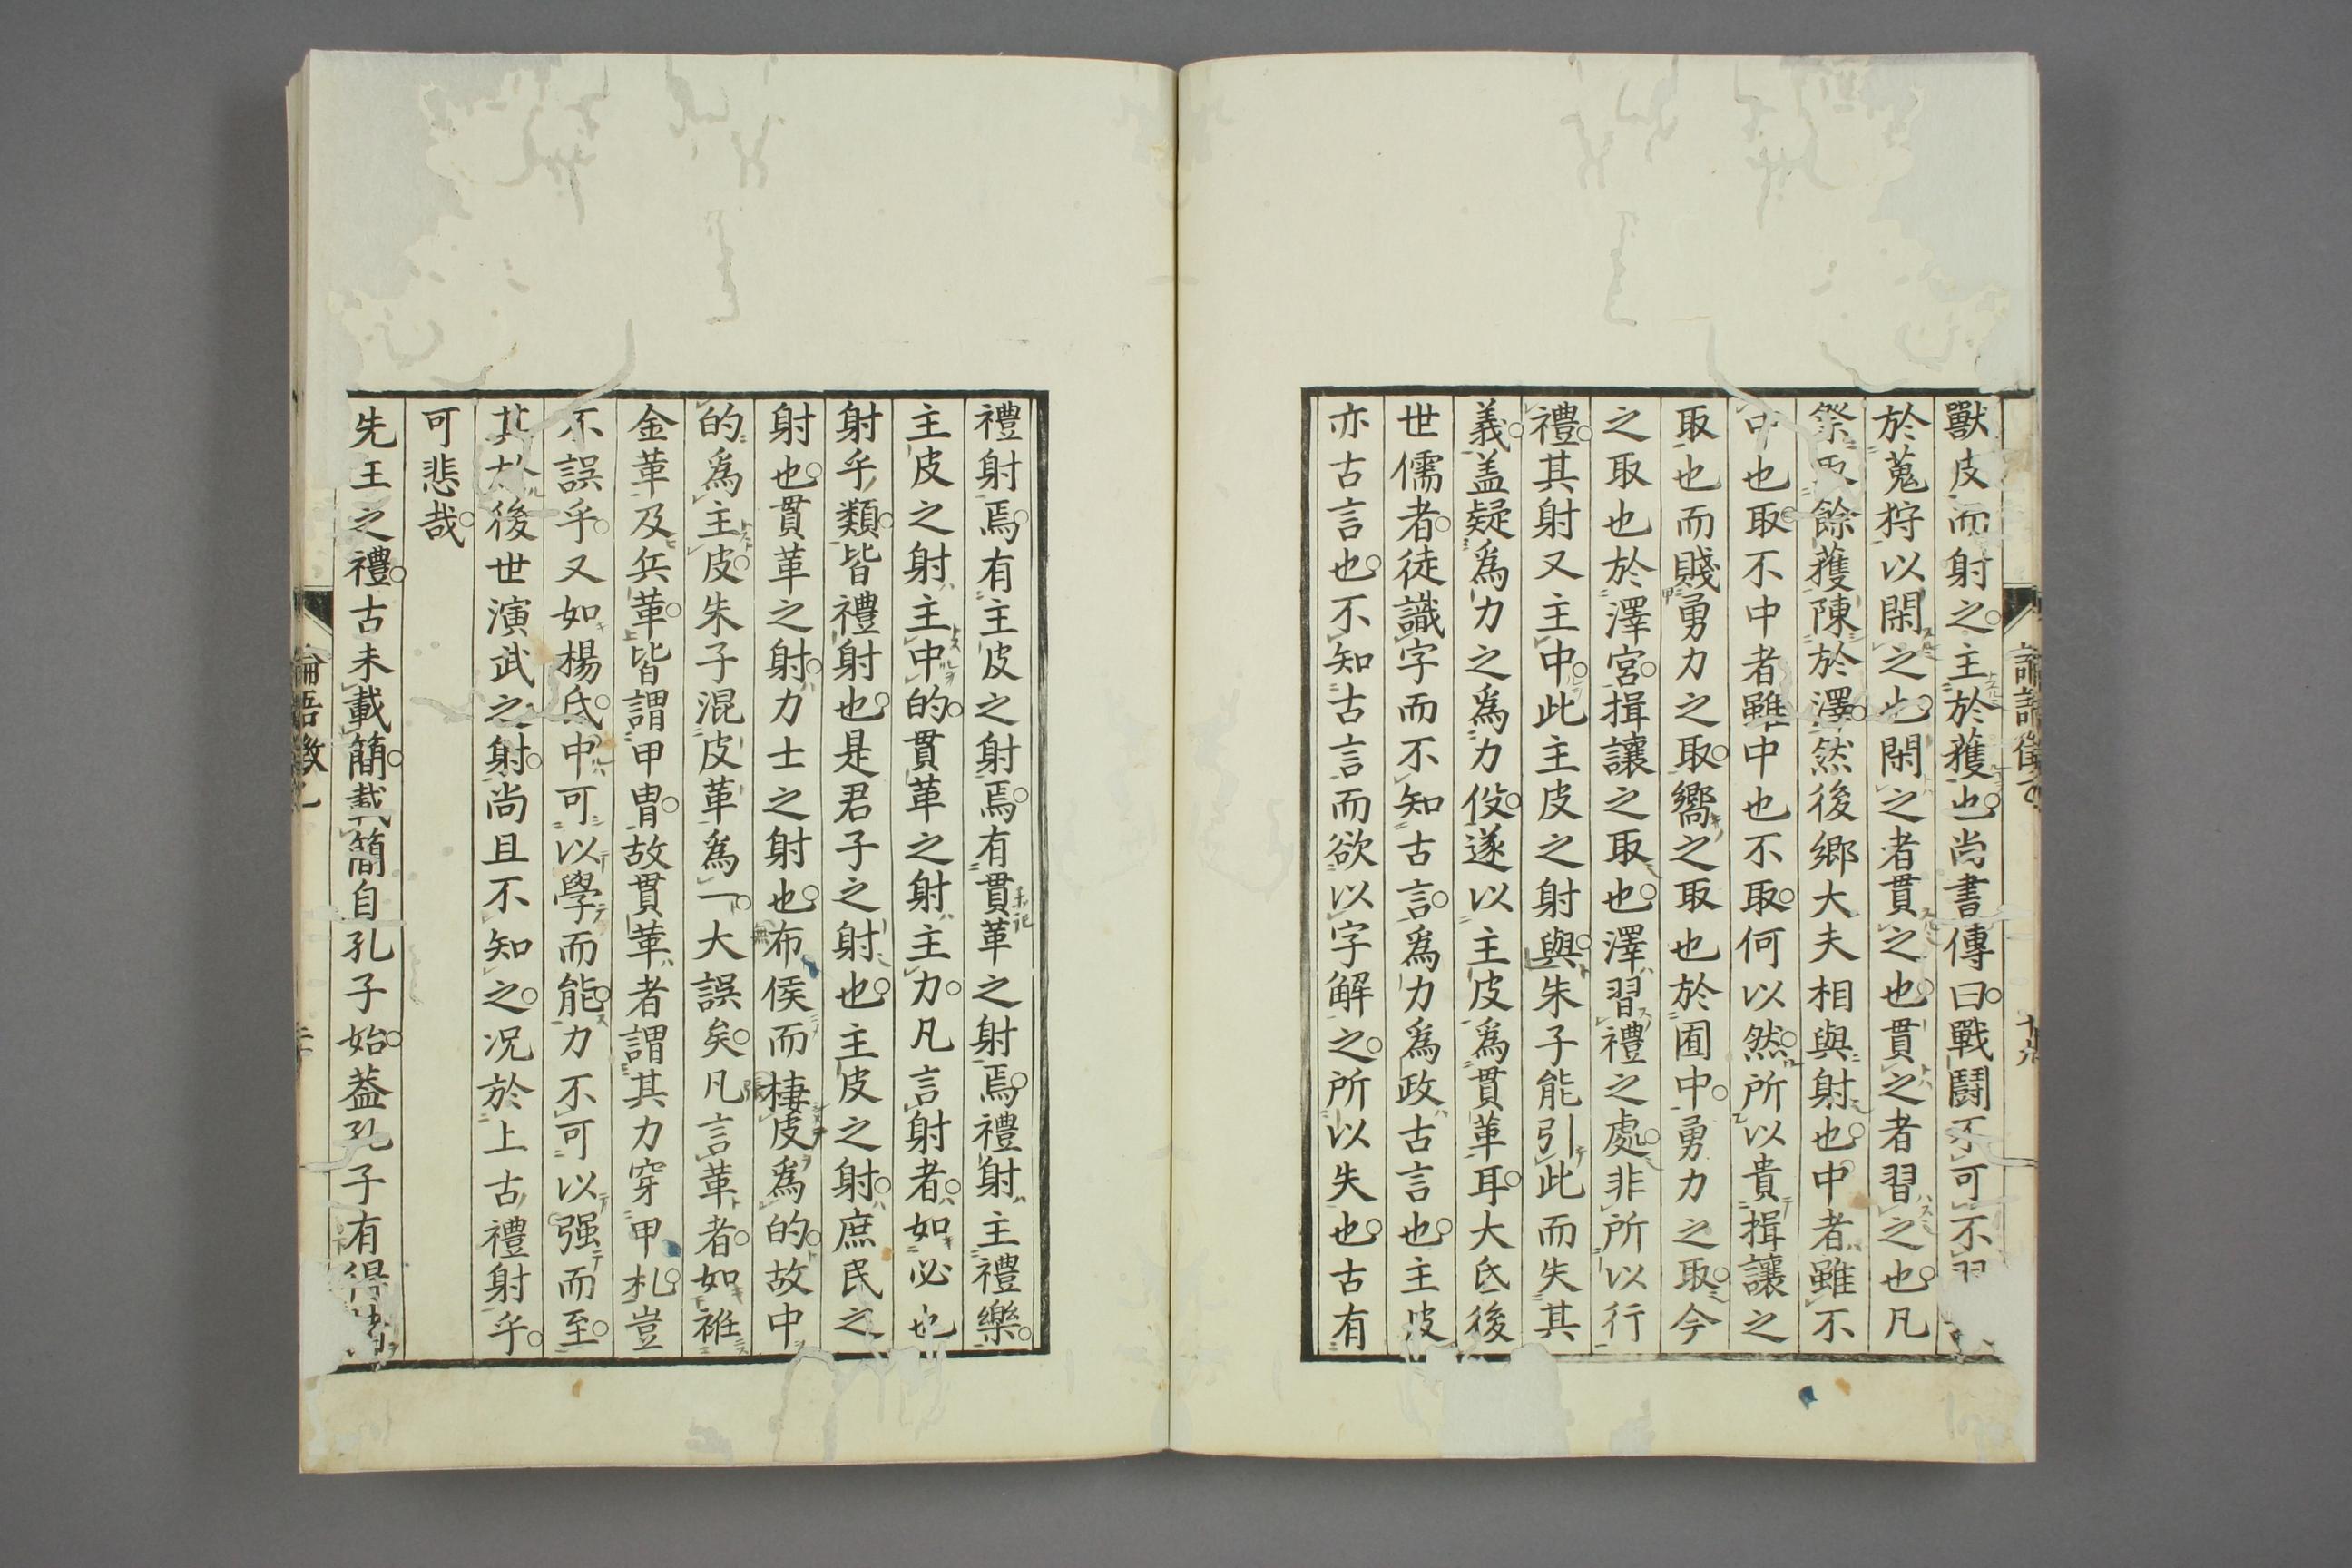 獸皮而射之主於獲也尚書傳曰戰鬪不可不習
於蒐狩以閑之也閑之者貫之也貫之者習之也凡
祭取餘獲陳於澤然後鄉大夫相與射也中者雖不
中也取不中者雖中也不取何以然所以貴揖讓之
取也而賤勇力之取嚮之取也於囿中勇力之取今
之取也於澤宮揖讓之取也澤習禮之處非所以行
禮其射又主中此主皮之射與朱子能引此而失其
義盖疑爲力之爲力役遂以主皮爲貫革耳大氐後
世儒者徒識字而不知古言爲力爲政古言也主皮
亦古言也不知古言而欲以字解之所以失也古有
禮射焉有主皮之射焉有貫革之射焉禮射主禮樂
主皮之射主中的貫革之射主力凡言射者如必也
射乎類皆禮射也是君子之射也主皮之射庶民之
射也貫革之射力士之射也布侯而棲皮爲的故中
的爲主皮朱子混皮革爲一大誤矣凡言革者如袵
金革及兵革皆謂甲冑故貫革者謂其力穿甲札豈
不誤乎又如楊氏中可以學而能力不可以强而至
其於後世演武之射尚且不知之况於上古禮射乎
可悲哉
先王之禮古未載簡載簡自孔子始蓋孔子有得